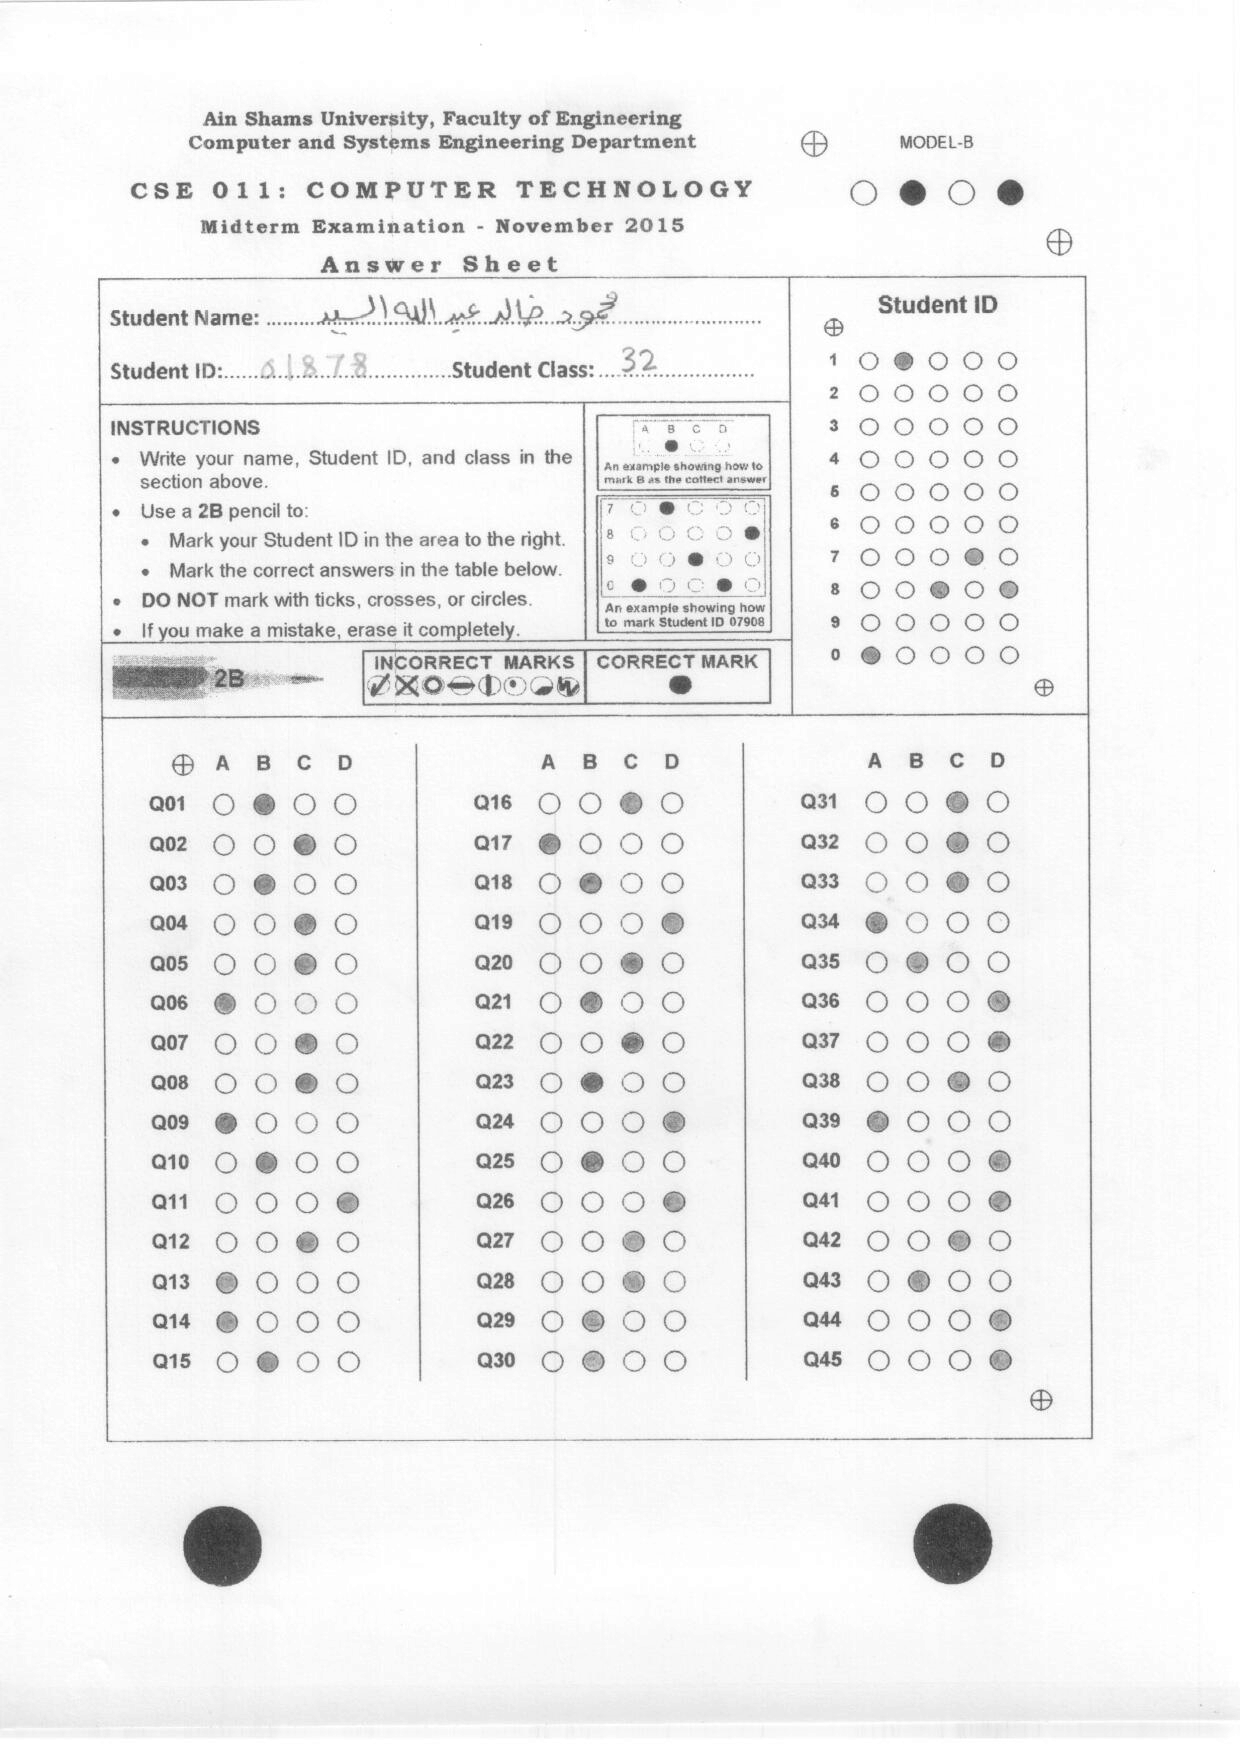 Ain Shams University, Faculty of Engineering
Computer and Systems Engineering Department
MODEL-B
CSE 011: COMPUTER TECHNOLOGY
Midterm Examination - November 2015
Answer Sheet
Student Name: محمود خالد عبد الله السيد
Student ID: 01878 Student Class: 32
Student ID
1
2
3
4
5
6
7
8
9
0
INSTRUCTIONS
• Write your name, Student ID, and class in the
section above.
• Use a 2B pencil to:
• Mark your Student ID in the area to the right.
• Mark the correct answers in the table below.
• DO NOT mark with ticks, crosses, or circles.
• If you make a mistake, erase it completely.
A B C D
An example showing how to
mark B as the cottect answer
7
8
9
0
An example showing how
to mark Student ID 07908
2B
INCORRECT MARKS
CORRECT MARK
A B C D
Q01
Q02
Q03
Q04
Q05
Q06
Q07
Q08
Q09
Q10
Q11
Q12
Q13
Q14
Q15
A B C D
Q16
Q17
Q18
Q19
Q20
Q21
Q22
Q23
Q24
Q25
Q26
Q27
Q28
Q29
Q30
A B C D
Q31
Q32
Q33
Q34
Q35
Q36
Q37
Q38
Q39
Q40
Q41
Q42
Q43
Q44
Q45